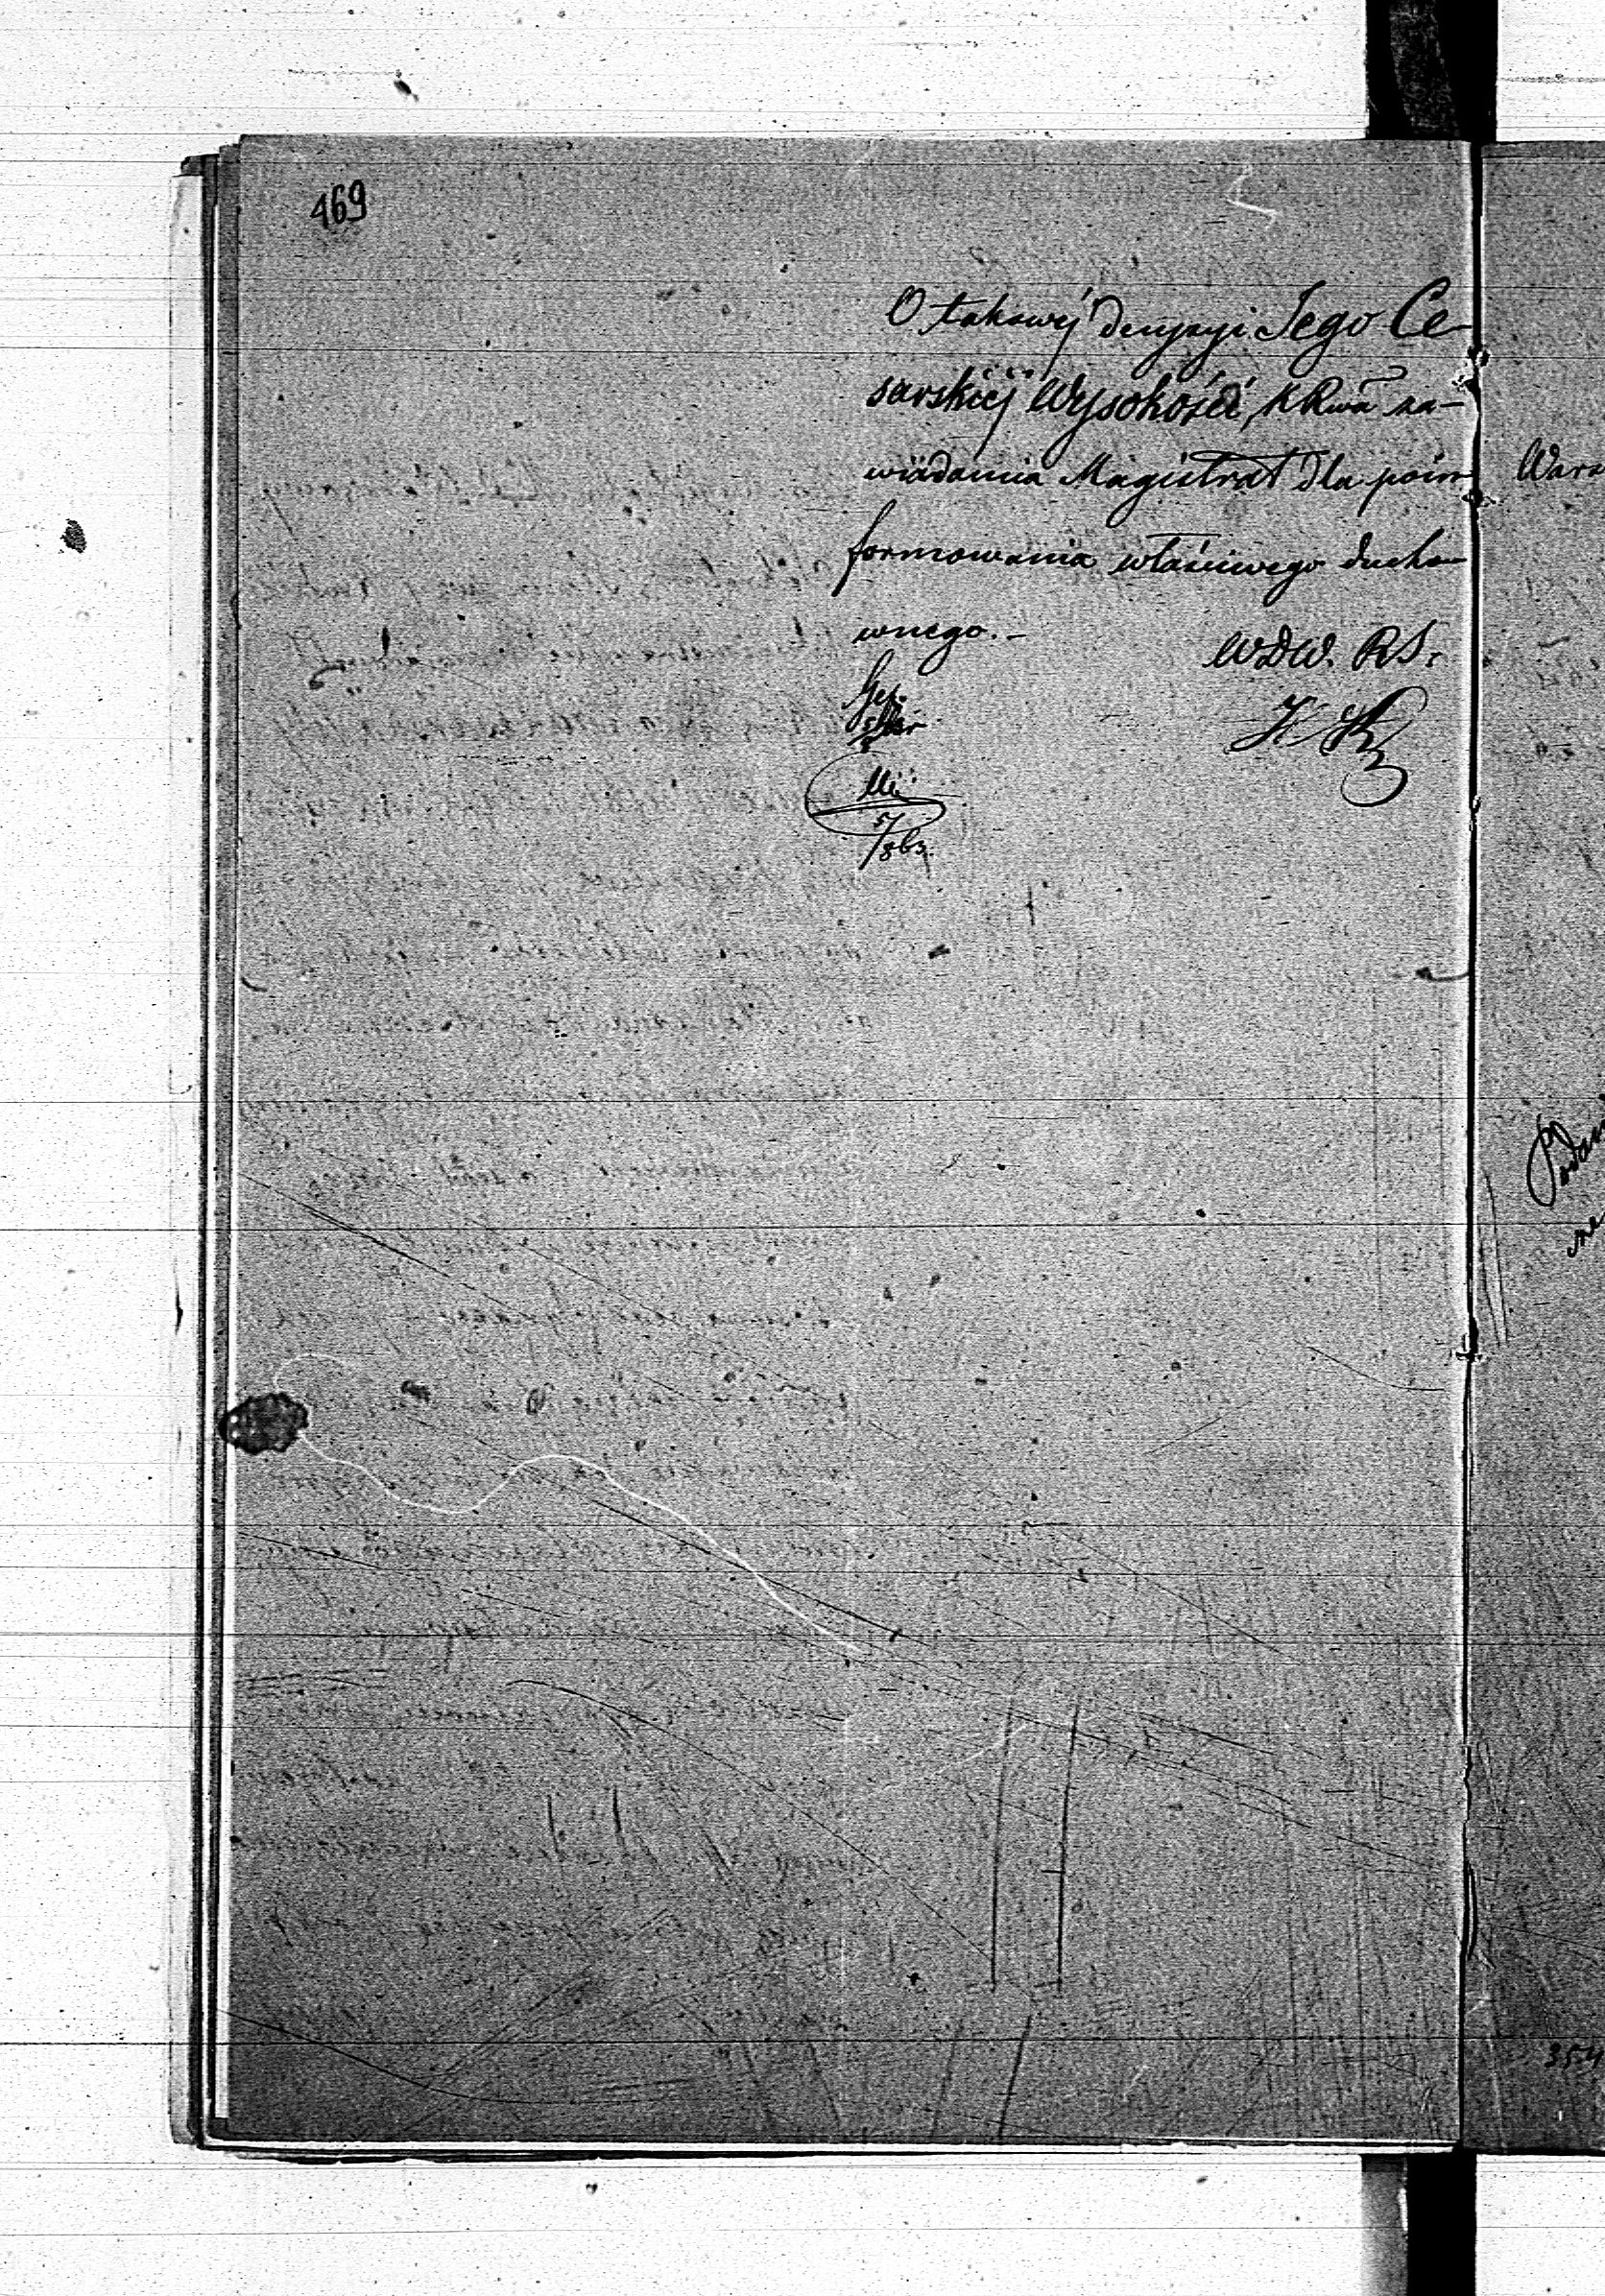 469
O takowej decyzyi Jego Ce-
sarskiej Wysokości, KRwa za-
wiadamia Magistrat dla poin-
formowania właściwego ducho-
wnego.-
WDW. RS.
5/8br.
Wars
354